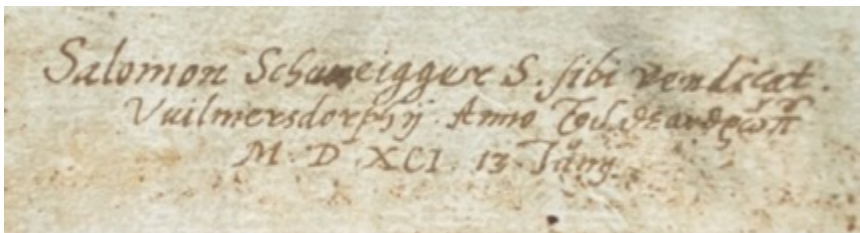 Salomon Schweigger S. sibi vendicat.
Vuilmersdorphij. Anno τοῦ θεανθρώπ
M. D. XCI. 13. Junij